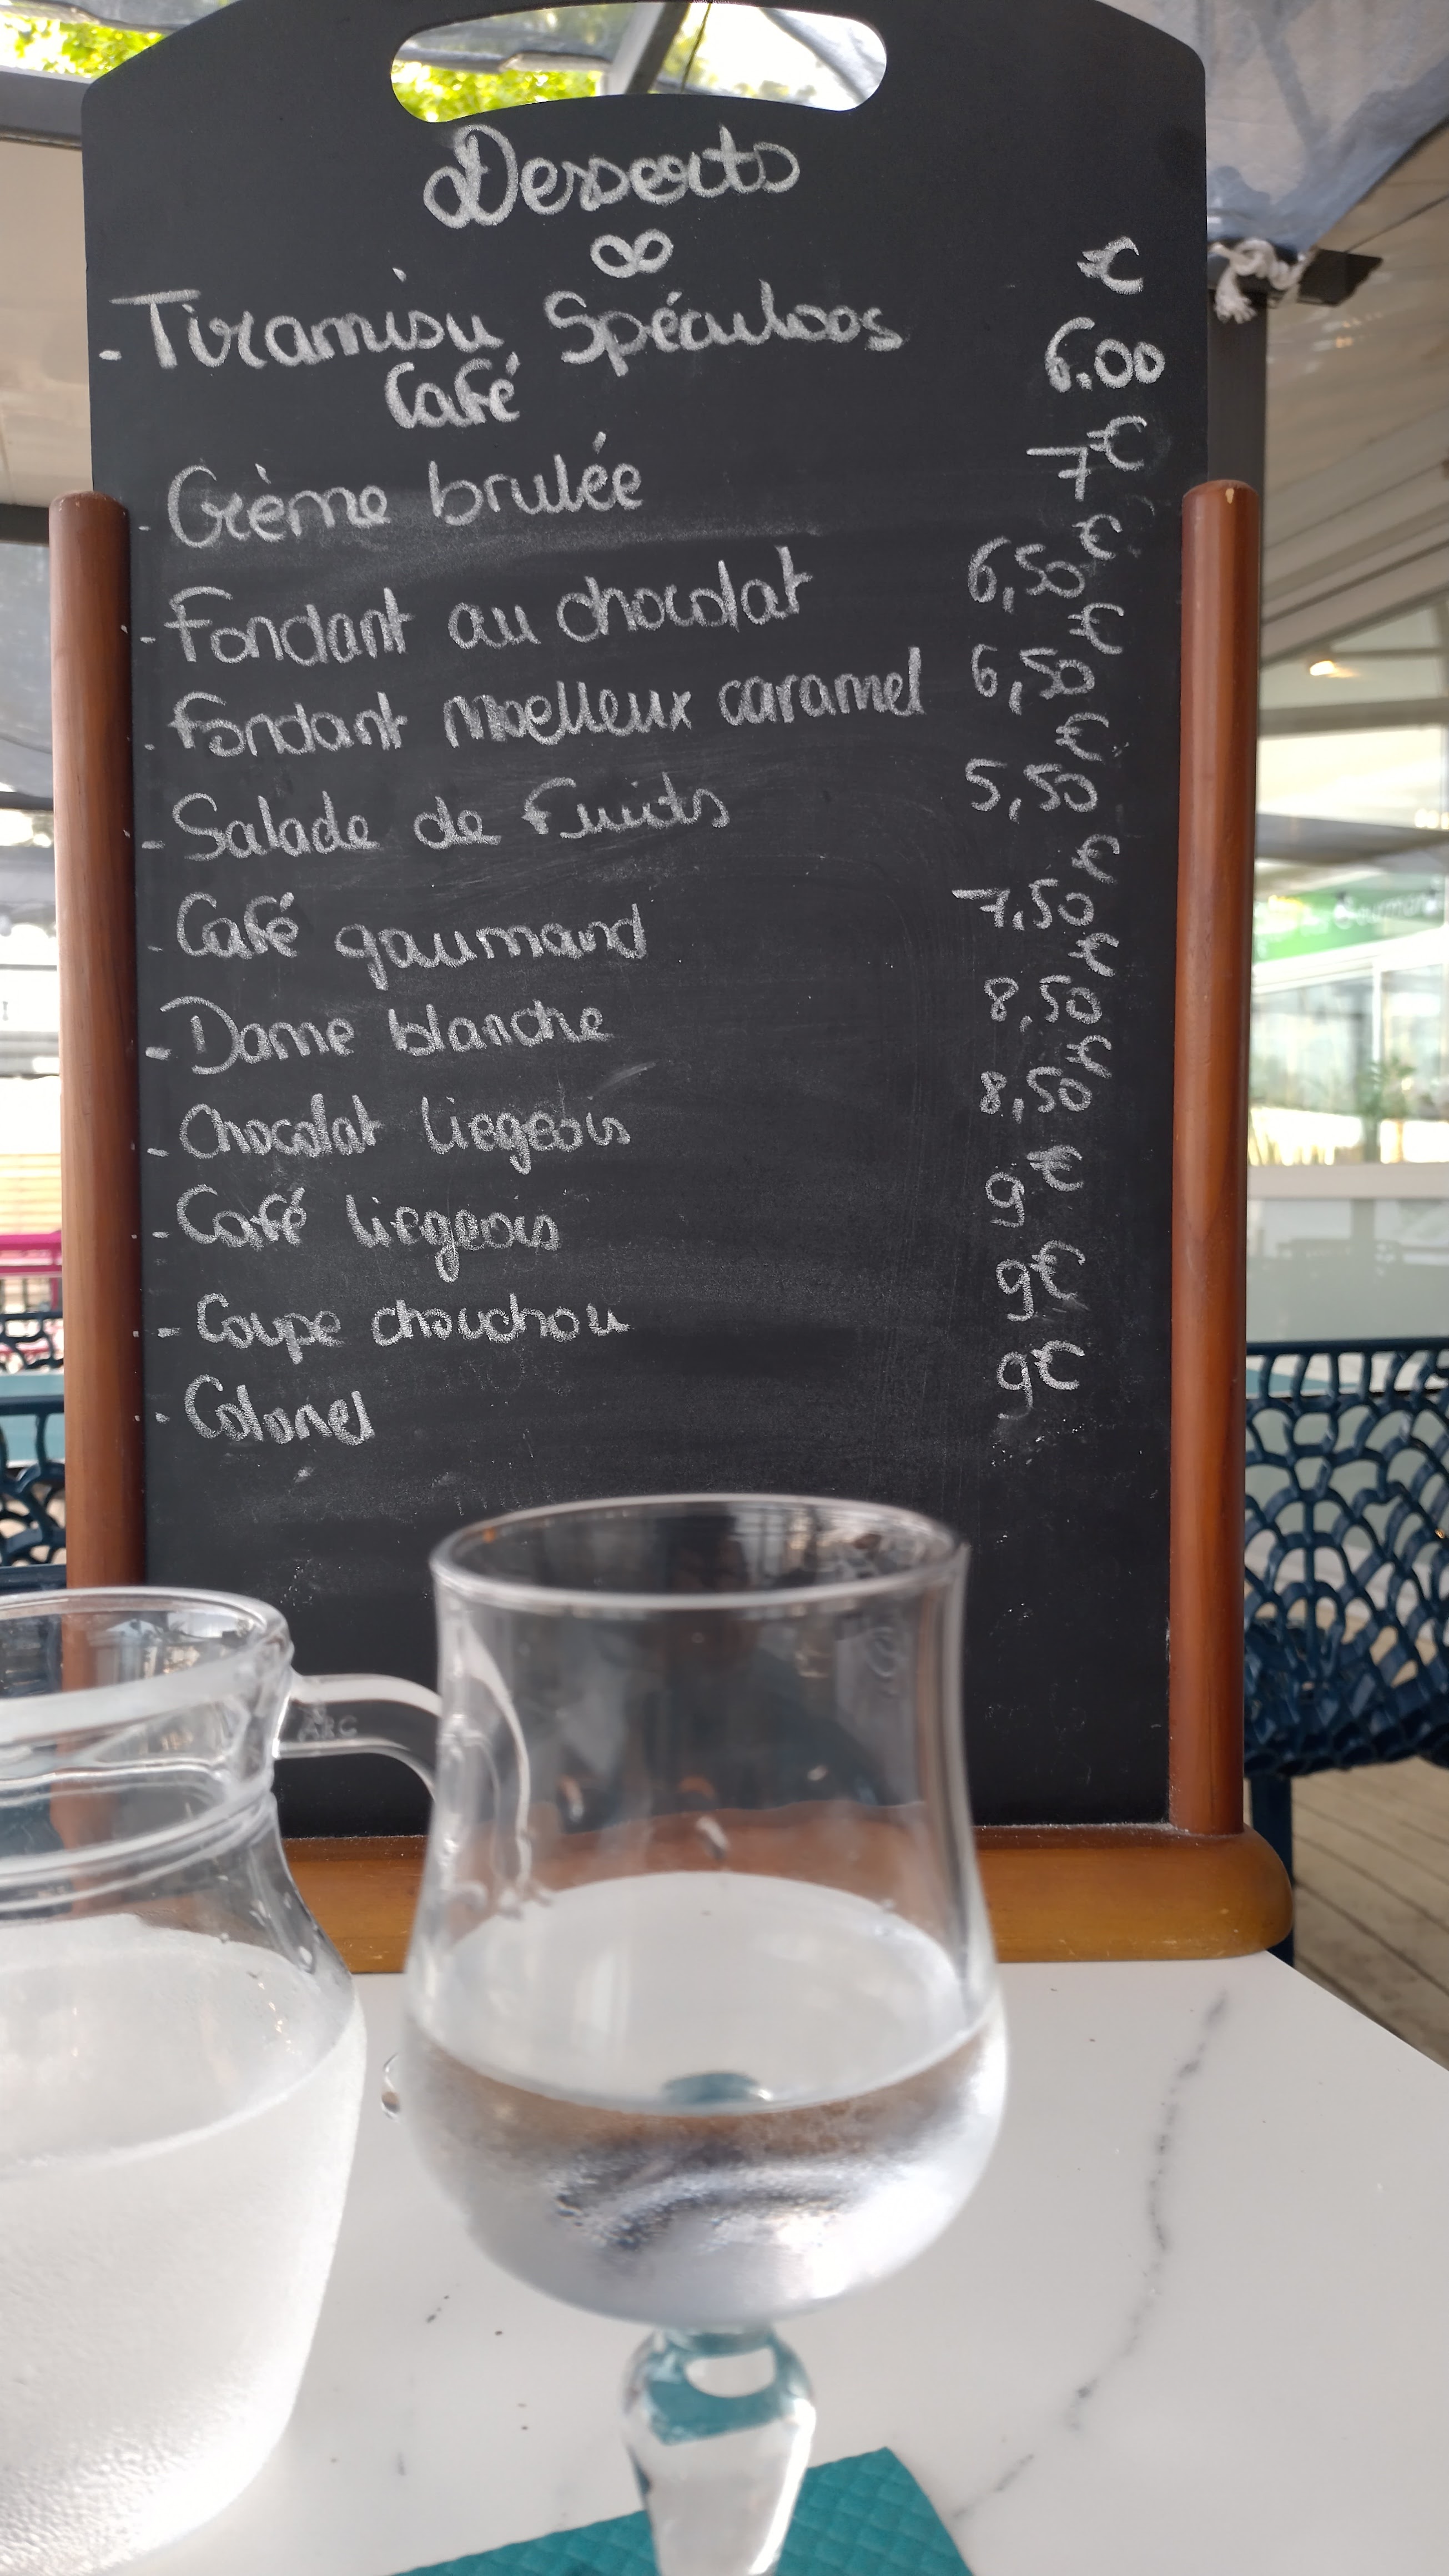 Desserts
- Tiramisu Spéculoos 6.00 €
Café
- Crème brulée 7 €
- Fondant au chocolat 6,50 €
- Fondant moelleux caramel 6,50 €
- Salade de Fruits 5,50 €
- Café gourmand 7,50 €
- Dame blanche 8,50 €
- Chocolat liegeois 8,50 €
- Café liegeois 9 €
- Coupe chouchou 9 €
- Colonel 9 €